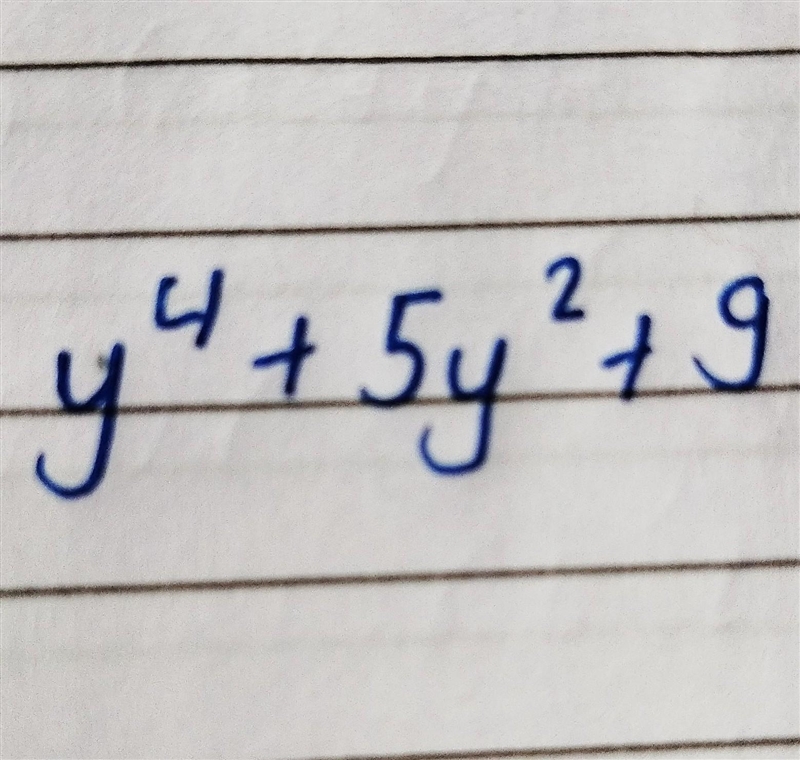 y⁴ + 5y² + 9